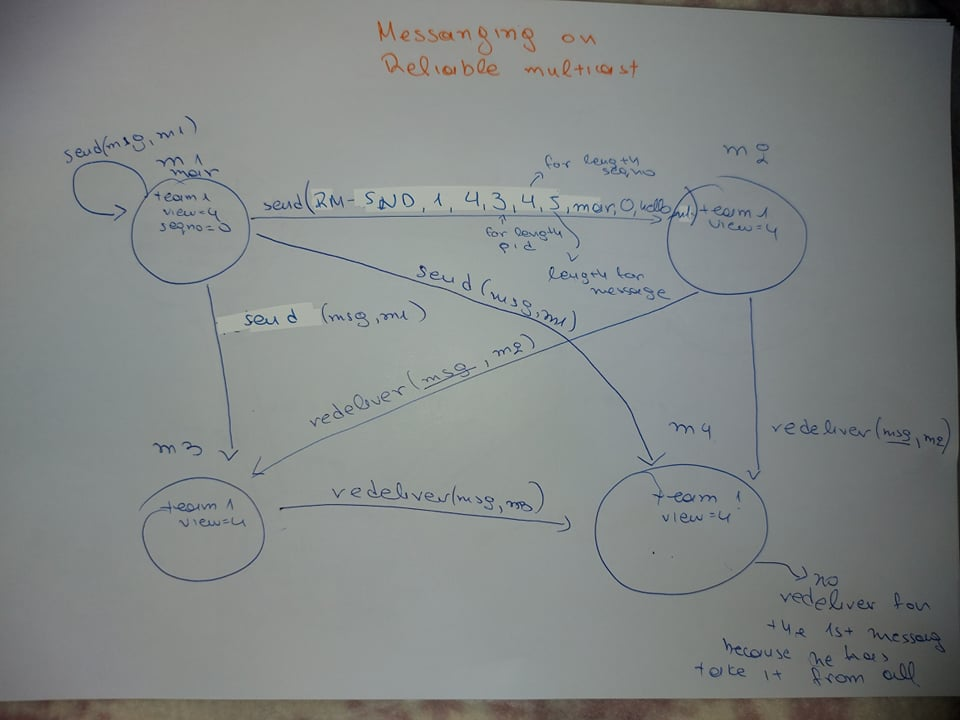 Messanging on
Reliable multicast
send(msg, m1)
m1
mar
team 1
view=4
seqno=0
send(RM-SND, 1, 4, 3, 4, 5, mar, 0, hello, m1)
for length
seqno
for length
pid
length for
message
m2
team 1
view=4
send (msg, m1)
send (msg, m1)
redeliver(msg, m2)
redeliver(msg, m2)
m3
team 1
view=4
redeliver(msg, m3)
m4
team 1
view=4
no
redeliver for
the 1st messag
because he has
take it from all